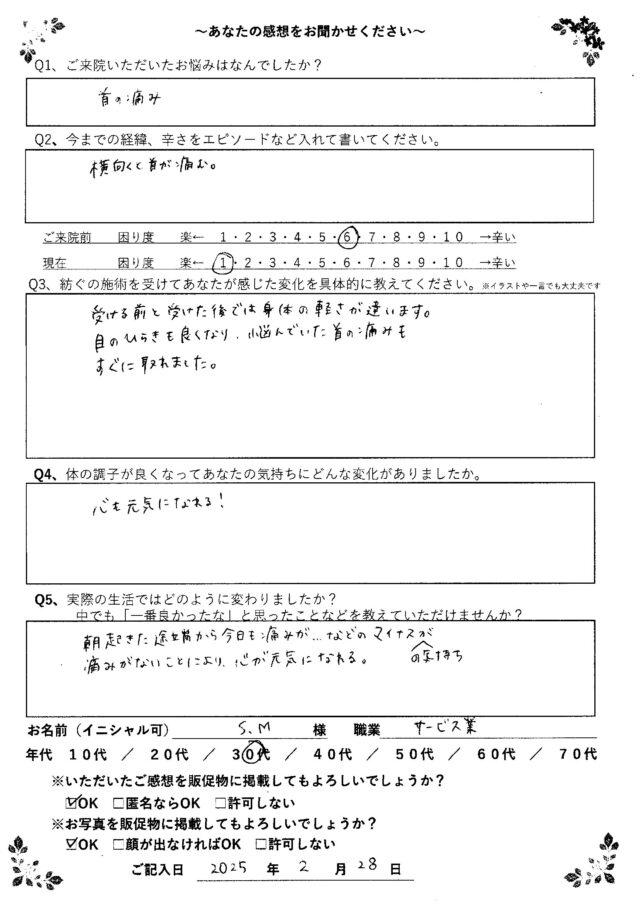 ～あなたの感想をお聞かせください～
Q1、ご来院いただいたお悩みはなんでしたか？
首の痛み
Q2、今までの経緯、辛さをエピソードなど入れて書いてください。
横向くと首が痛む。
ご来院前 困り度 楽← 1・2・3・4・5・6・7・8・9・10 →辛い
現在 困り度 楽← 1・2・3・4・5・6・7・8・9・10 →辛い
Q3、紡ぐの施術を受けてあなたが感じた変化を具体的に教えてください。※イラストや一言でも大丈夫です
受ける前と受けた後では身体の軽さが違います。
目のひらきも良くなり、悩んでいた首の痛みも
すぐに取れました。
Q4、体の調子が良くなってあなたの気持ちにどんな変化がありましたか。
心も元気になれる！
Q5、実際の生活ではどのように変わりましたか？
中でも「一番良かったな」と思ったことなどを教えていただけませんか？
朝起きた途端から今日も痛みが…などのマイナスの気持ちが
痛みがないことにより、心が元気になれる。
お名前（イニシャル可） S.M 様 職業 サービス業
年代 10代 ／ 20代 ／ 30代 ／ 40代 ／ 50代 ／ 60代 ／ 70代
※いただいたご感想を販促物に掲載してもよろしいでしょうか？
☑OK □匿名ならOK □許可しない
※お写真を販促物に掲載してもよろしいでしょうか？
☑OK □顔が出なければOK □許可しない
ご記入日 2025 年 2 月 28 日